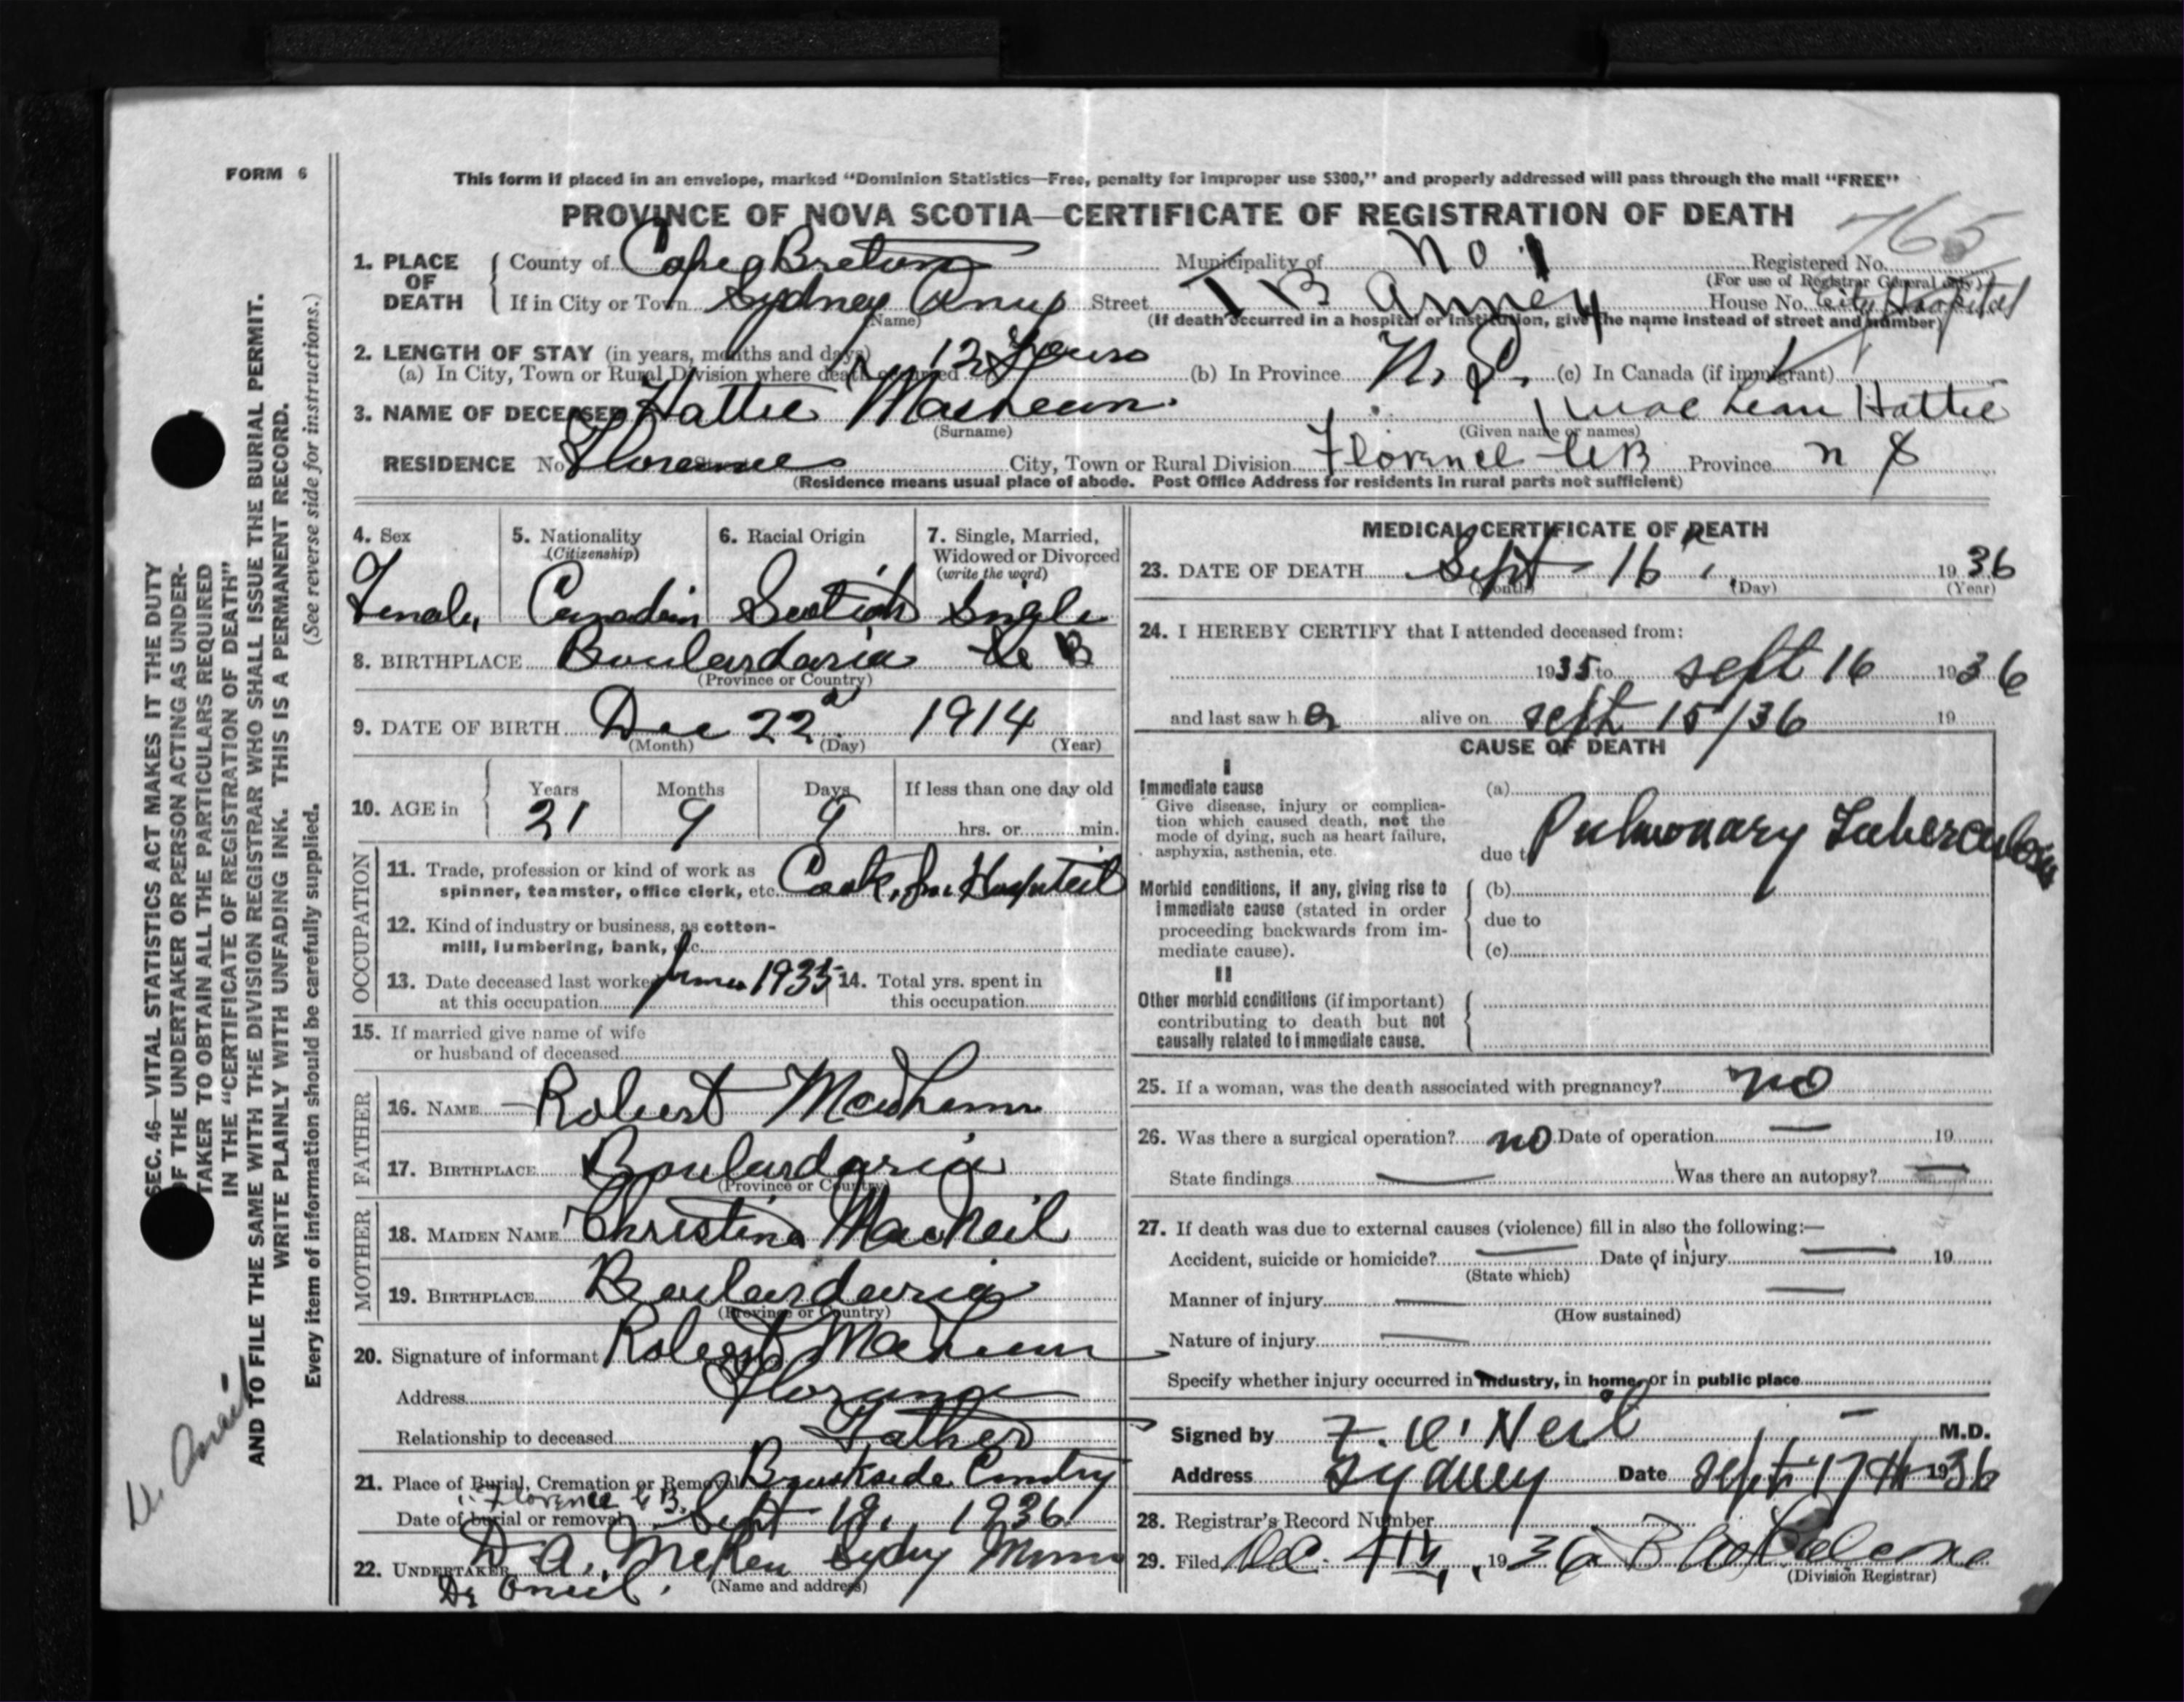 FORM 6
This form if placed in an envelope, marked “Dominion Statistics—Free, penalty for improper use $300,” and properly addressed will pass through the mail “FREE”
PROVINCE OF NOVA SCOTIA—CERTIFICATE OF REGISTRATION OF DEATH
765
1. PLACE OF DEATH { County of Cape Breton Municipality of No 1 Registered No.
(For use of Registrar General only)
If in City or Town Sydney Street T B Annex House No. City Hospital
(Name) (If death occurred in a hospital or institution, give the name instead of street and number)
2. LENGTH OF STAY (in years, months and days)
(a) In City, Town or Rural Division where death occurred 12 Years (b) In Province N. S. (c) In Canada (if immigrant)
3. NAME OF DECEASED Hattie MacLean MacLean Hattie
(Surname) (Given name or names)
RESIDENCE No. Florence Street City, Town or Rural Division Florence CB Province N S
(Residence means usual place of abode. Post Office Address for residents in rural parts not sufficient)
4. Sex 5. Nationality (Citizenship) 6. Racial Origin 7. Single, Married, Widowed or Divorced (write the word)
Female Canadian Scotish Single
8. BIRTHPLACE Boulardaria C B
(Province or Country)
9. DATE OF BIRTH Dec 22d 1914
(Month) (Day) (Year)
10. AGE in { Years Months Days If less than one day old
21 9 9 hrs. or min.
OCCUPATION
11. Trade, profession or kind of work as spinner, teamster, office clerk, etc. Cook, Hospital
12. Kind of industry or business, as cotton-mill, lumbering, bank, etc.
13. Date deceased last worked at this occupation 1935 14. Total yrs. spent in this occupation
15. If married give name of wife or husband of deceased
FATHER
16. NAME Robert MacLean
17. BIRTHPLACE Boulardaria
(Province or Country)
MOTHER
18. MAIDEN NAME Christina MacNeil
19. BIRTHPLACE Boulardaria
(Province or Country)
20. Signature of informant Robert MacLean
Address Florence
Relationship to deceased Father
21. Place of Burial, Cremation or Removal Brookside Cemetry
Florence C B.
Date of burial or removal Sept 19, 1936
22. UNDERTAKER D A. McRea Sydny Mines
(Name and address)
Dr Oneil.
MEDICAL CERTIFICATE OF DEATH
23. DATE OF DEATH Sept - 16 1936
(Month) (Day) (Year)
24. I HEREBY CERTIFY that I attended deceased from:
1935 to Sept 16 1936
and last saw h er alive on Sept 15/36 19
CAUSE OF DEATH
I
Immediate cause (a)
Give disease, injury or complication which caused death, not the mode of dying, such as heart failure, asphyxia, asthenia, etc.
due to Pulmonary Tuberculosis
Morbid conditions, if any, giving rise to immediate cause (stated in order proceeding backwards from immediate cause).
(b)
due to
(c)
II
Other morbid conditions (if important) contributing to death but not causally related to immediate cause.
25. If a woman, was the death associated with pregnancy? no
26. Was there a surgical operation? no Date of operation — 19
State findings — Was there an autopsy? —
27. If death was due to external causes (violence) fill in also the following:—
Accident, suicide or homicide? — Date of injury — 19
(State which)
Manner of injury —
(How sustained)
Nature of injury —
Specify whether injury occurred in industry, in home, or in public place
Signed by F. O'Neil M.D.
Address Sydney Date Sept 17th 1936
28. Registrar's Record Number
29. Filed Dec. 4th, 1936
(Division Registrar)
SEC. 46—VITAL STATISTICS ACT MAKES IT THE DUTY
OF THE UNDERTAKER OR PERSON ACTING AS UNDER-
TAKER TO OBTAIN ALL THE PARTICULARS REQUIRED
IN THE “CERTIFICATE OF REGISTRATION OF DEATH”
AND TO FILE THE SAME WITH THE DIVISION REGISTRAR WHO SHALL ISSUE THE BURIAL PERMIT.
WRITE PLAINLY WITH UNFADING INK. THIS IS A PERMANENT RECORD.
Every item of information should be carefully supplied. (See reverse side for instructions.)